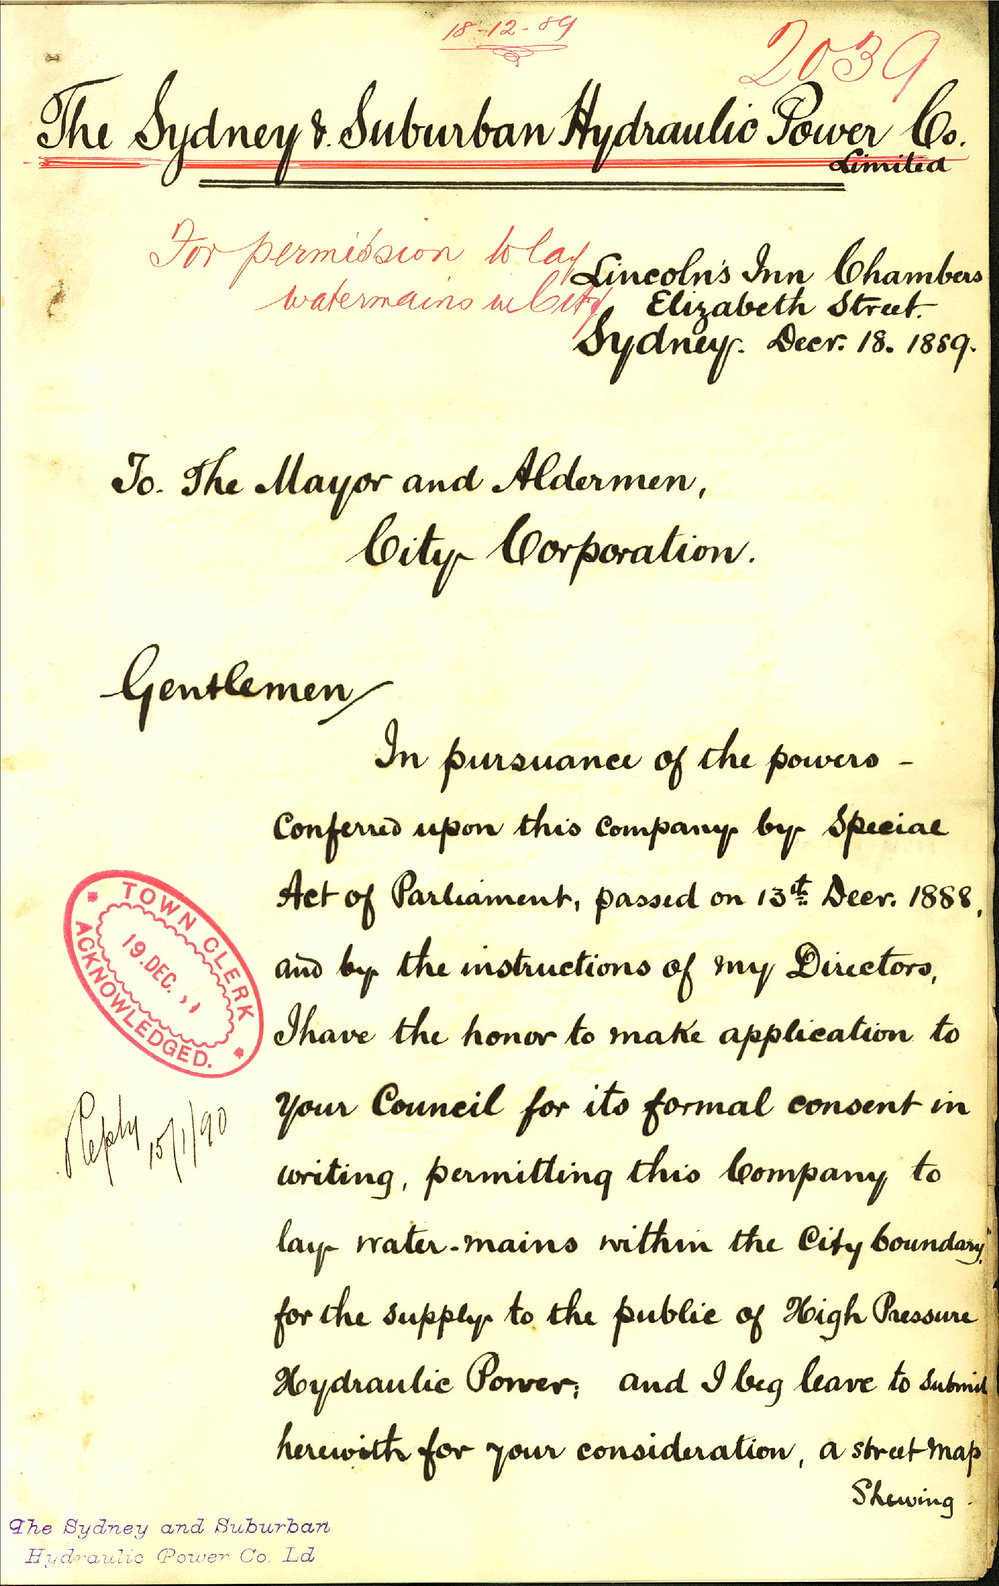 18-12-89
2039
The Sydney & Suburban Hydraulic Power Co.
Limited
For permission to lay
watermains in City
Lincoln's Inn Chambers
Elizabeth Street.
Sydney. Decr. 18. 1889.
To. The Mayor and Aldermen,
City Corporation.
Gentlemen
In pursuance of the powers -
conferred upon this company by Special
Act of Parliament, passed on 13th. Decr. 1888,
and by the instructions of my Directors,
I have the honor to make application to
your Council for its formal consent in
writing, permitting this Company to
lay water-mains within the City boundary,
for the supply to the public of High Pressure
Hydraulic Power; and I beg leave to submit
herewith for your consideration, a street map
Shewing -
TOWN CLERK
19. DEC. 
ACKNOWLEDGED.
Reply 15/1/90
The Sydney and Suburban
Hydraulic Power Co. Ld